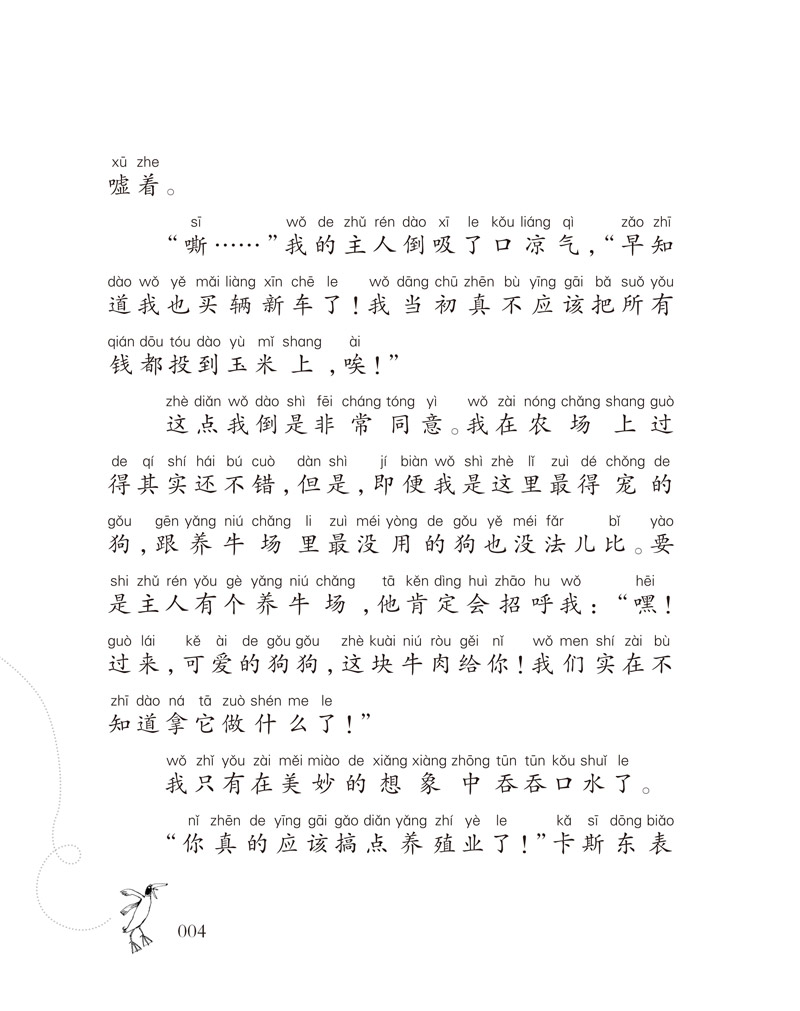 xū zhe
嘘着。
sī wǒ de zhǔ rén dào xī le kǒu liáng qì zǎo zhī
“嘶……”我的主人倒吸了口凉气，“早知
dào wǒ yě mǎi liàng xīn chē le wǒ dāng chū zhēn bù yīng gāi bǎ suǒ yǒu
道我也买辆新车了！我当初真不应该把所有
qián dōu tóu dào yù mǐ shang ài
钱都投到玉米上，唉！”
zhè diǎn wǒ dào shì fēi cháng tóng yì wǒ zài nóng chǎng shang guò
这点我倒是非常同意。我在农场上过
de qí shí hái bú cuò dàn shì jí biàn wǒ shì zhè lǐ zuì dé chǒng de
得其实还不错，但是，即便我是这里最得宠的
gǒu gēn yǎng niú chǎng li zuì méi yòng de gǒu yě méi fǎr bǐ yào
狗，跟养牛场里最没用的狗也没法儿比。要
shi zhǔ rén yǒu gè yǎng niú chǎng tā kěn dìng huì zhāo hu wǒ hēi
是主人有个养牛场，他肯定会招呼我：“嘿！
guò lái kě ài de gǒu gǒu zhè kuài niú ròu gěi nǐ wǒ men shí zài bù
过来，可爱的狗狗，这块牛肉给你！我们实在不
zhī dào ná tā zuò shén me le
知道拿它做什么了！”
wǒ zhǐ yǒu zài měi miào de xiǎng xiàng zhōng tūn tūn kǒu shuǐ le
我只有在美妙的想象中吞吞口水了。
nǐ zhēn de yīng gāi gǎo diǎn yǎng zhí yè le kǎ sī dōng biǎo
“你真的应该搞点养殖业了！”卡斯东表
004